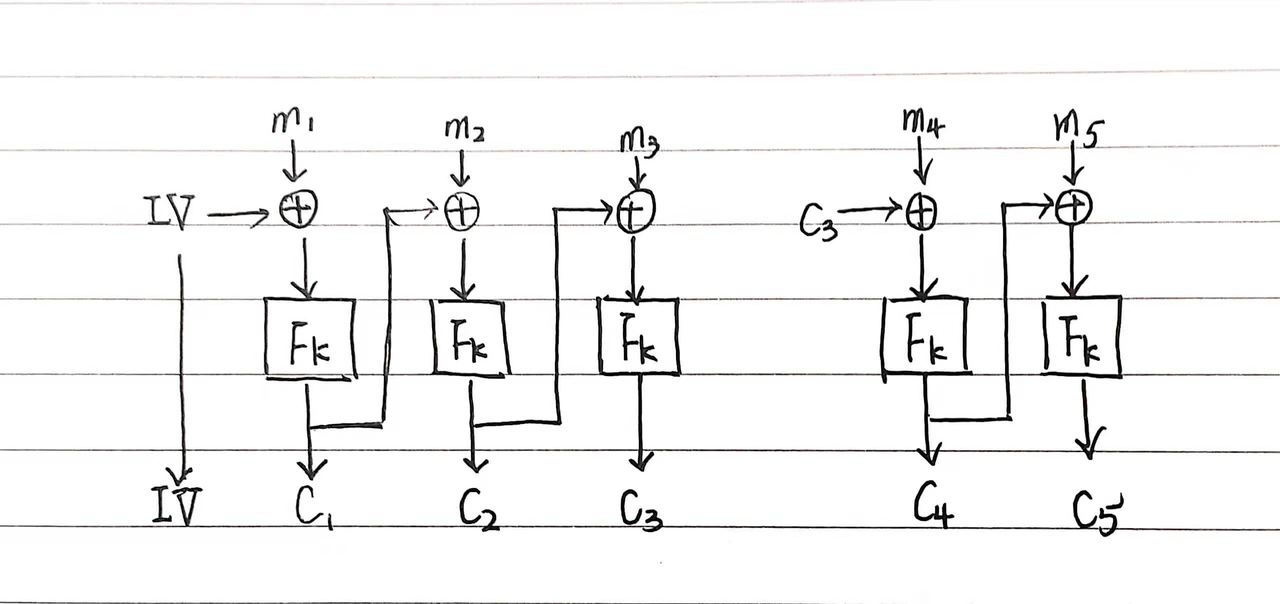 m₁ m₂ m₃ m₄ m₅
IV ⊕ ⊕ ⊕ C₃ ⊕ ⊕
Fk Fk Fk Fk Fk
IV C₁ C₂ C₃ C₄ C₅